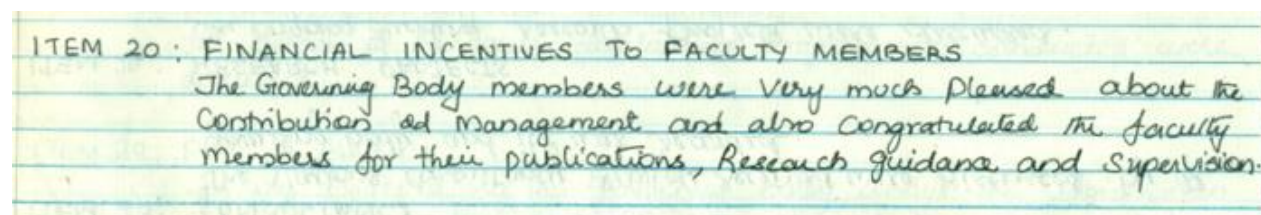 ITEM 20: FINANCIAL INCENTIVES TO FACULTY MEMBERS
The Governing Body members were Very much Pleased about the
Contribution ad Management and also Congratulated the faculty
members for their publications, Research guidance and Supervision.